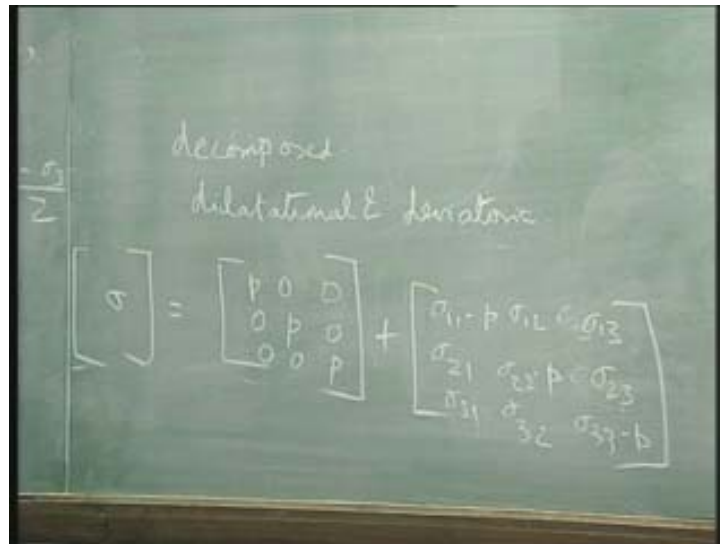 - σ3
2
decomposed
dilatational & deviatoric
[σ] = [p 0 0
0 p 0
0 0 p] + [σ11-p σ12 σ13
σ21 σ22-p σ23
σ31 σ32 σ33-p]